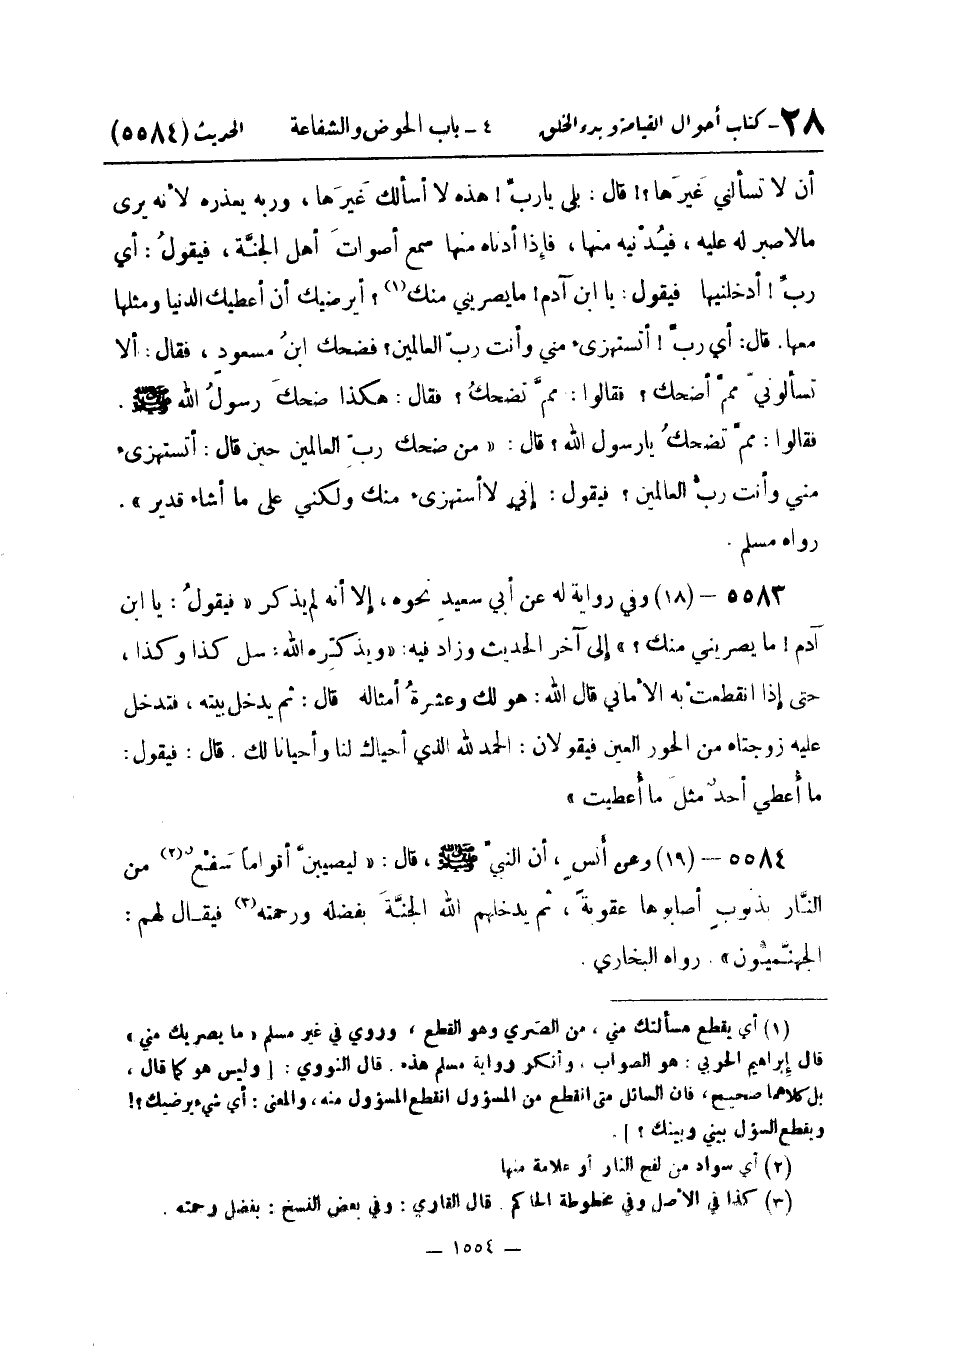 ٢٨- كتاب أحوال القيامة وبدء الخلق ٤ - باب الحوض والشفاعة الحديث (٥٥٨٤)
أن لا تسألني غيرَها؟! قال : بلى يارب! هذه لا أسألك غيرَها ، وربه يعذره لأنه يرى
مالاصبر له عليه ، فيُدْنيه منها ، فإذا أدناه منها سمع أصواتَ أهل الجنَّة ، فيقولُ : أي
ربِّ ! أدخلنيها فيقول : يا ابن آدم! مايصريني منك(١) ؟ أيرضيك أن أعطيك الدنيا ومثلها
معها. قال: أي ربِّ ! أتستهزىء مني وأنت ربّ العالمين؟ فضحك ابنُ مسعودٍ ، فقال : ألا
تسألونيّ ممّ أضحك ؟ فقالوا : ممَّ تضحكُ ؟ فقال : هكذا ضحكَ رسولُ الله ﷺ .
فقالوا : ممَّ تضحكُ يارسول الله ؟ قال : « من ضحك ربّ العالمين حين قال : أتستهزىء
مني وأنت ربُّ العالمين ؟ فيقول : إني لاأستهزىء منك ولكني على ما أشاء قدير » .
رواه مسلم .
٥٥٨٣ – (١٨) وفي رواية له عن أبي سعيدٍ نحوه ، إلا أنه لم يذكر « فيقولُ : يا ابن
آدم ! ما يصريني منك ؟ » إلى آخر الحديث وزاد فيه: «ويذكّره الله : سل كذا وكذا ،
حتى إذا انقطعتْ به الأماني قال الله : هو لك وعشرةُ أمثاله قال : ثم يدخل بيته ، فتدخل
عليه زوجتاه من الحور العين فيقولان : الحمد لله الذي أحياك لنا وأحيانا لك . قال : فيقول :
ما أُعطي أحدٌ مثلَ ما أُعطيت »
٥٥٨٤ – (١٩) وعن أنسٍ ، أن النبيّ ﷺ ، قال : « ليصيبنَّ أقواماً سَفْعٌ(٢) من
النَّار بذنوبٍ أصابوها عقوبةً ، ثم يدخلهم الله الجنَّةَ بفضله ورحمته(٣) فيقال لهم :
الجهنَّميُّون» . رواه البخاري .
(١) أي يقطع مسألتك مني ، من الصَري وهو القطع ، وروي في غير مسلم « ما يصريك مني »
قال إبراهيم الحربي : هو الصواب ، وأنكر رواية مسلم هذه . قال النووي : [ وليس هو كما قال ،
بل كلاهما صحيح ، فان السائل متى انقطع من المسؤول انقطع المسؤول منه ، والمعنى : أي شيء يرضيك؟!
ويقطع السؤل بيني وبينك ؟ ] .
(٢) أي سواد من لفح النار أو علامة منها
(٣) كذا في الأصل وفي مخطوطة الحاكم . قال القاري : وفي بعض النسخ : بفضل رحمته .
— ١٥٥٤ —